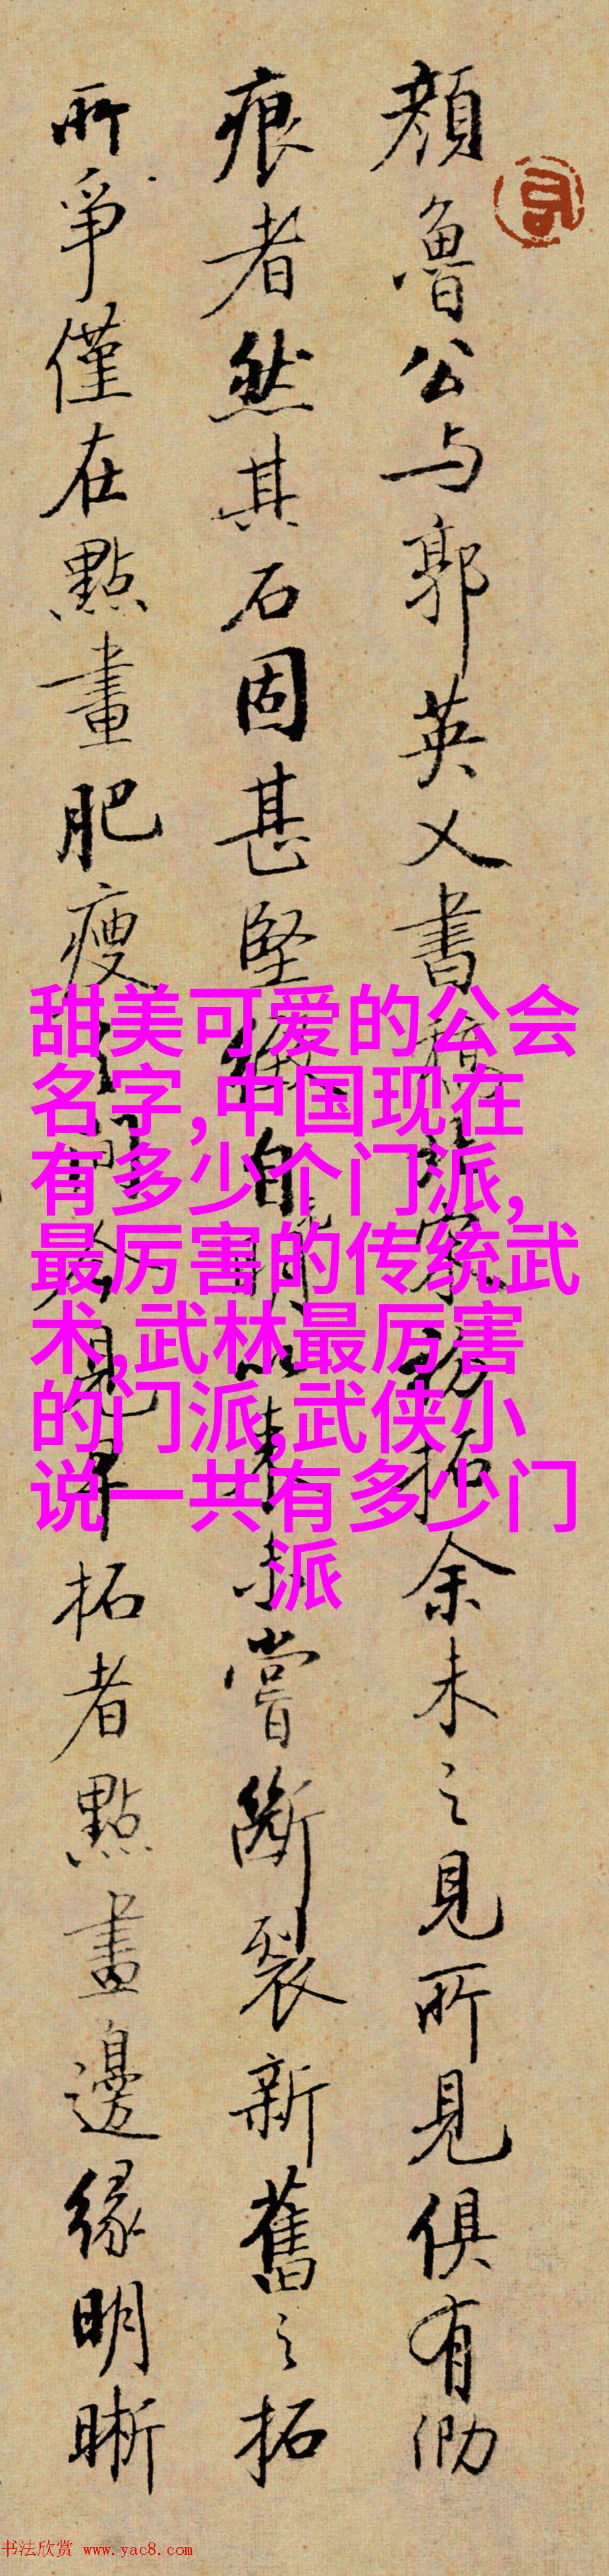 顏魯公与郭英乂書拓余未之見所見俱有泐
痕者然其石固甚堅自明以來未嘗斷裂新舊之拓
所爭僅在點畫肥瘦見早拓者點畫邊緣明晰
甜美可爱的公会
名字,中国现在
有多少个门派,
最厉害的传统武
术,武林最厉害
的门派,武侠小
说一共有多少门
派
书法欣赏 www.yac8.com